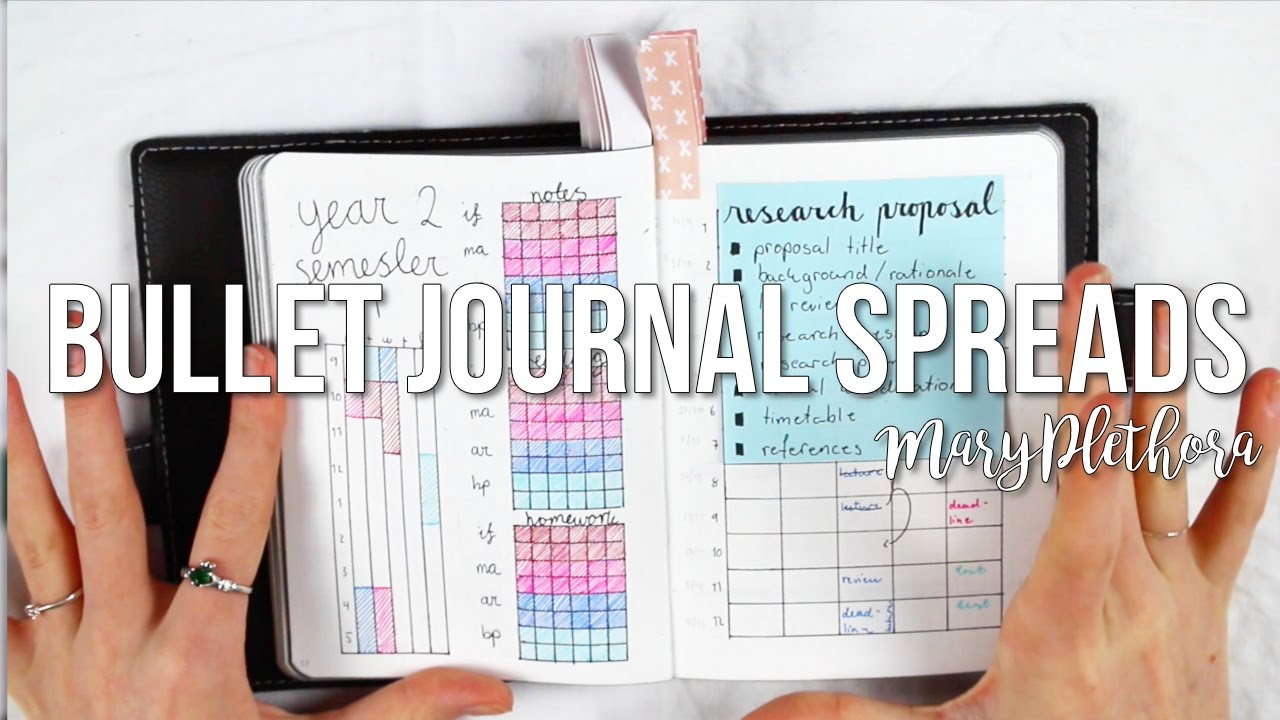 year 2
semester
notes
if
ma
bp
9
10
11
12
1
2
3
4
5
ma
ar
bp
homework
if
ma
ar
bp
research proposal
■ proposal title
■ background/rationale
review
■ timetable
■ references
1
2
6
7
8
9
10
11
12
lecture
lecture
dead-
line
review
test
dead-
line
test
BULLET JOURNAL SPREADS
MaryPlethora